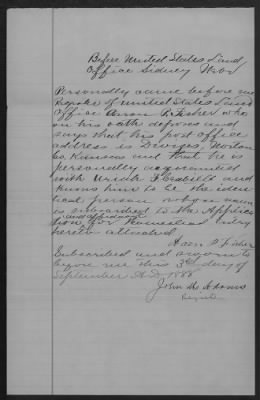 Before United States Land
Office Sidney Neb
Personally came before me
Register of United States Land
Office Aaron P. Fisher who
on his oath deposes and
says that his post office
address is Devizes, Norton
Co, Kansas and that he is
personally acquainted
with Uriah
knows him to be the iden
tical person whose name
is subscribed to the Applica
tion and affidavit for Homestead entry
hereto attached
Aaron P. Fisher
Subscribed and sworn to
before me this 3rd day of
September A.D. 1888
John M. Adams
Register